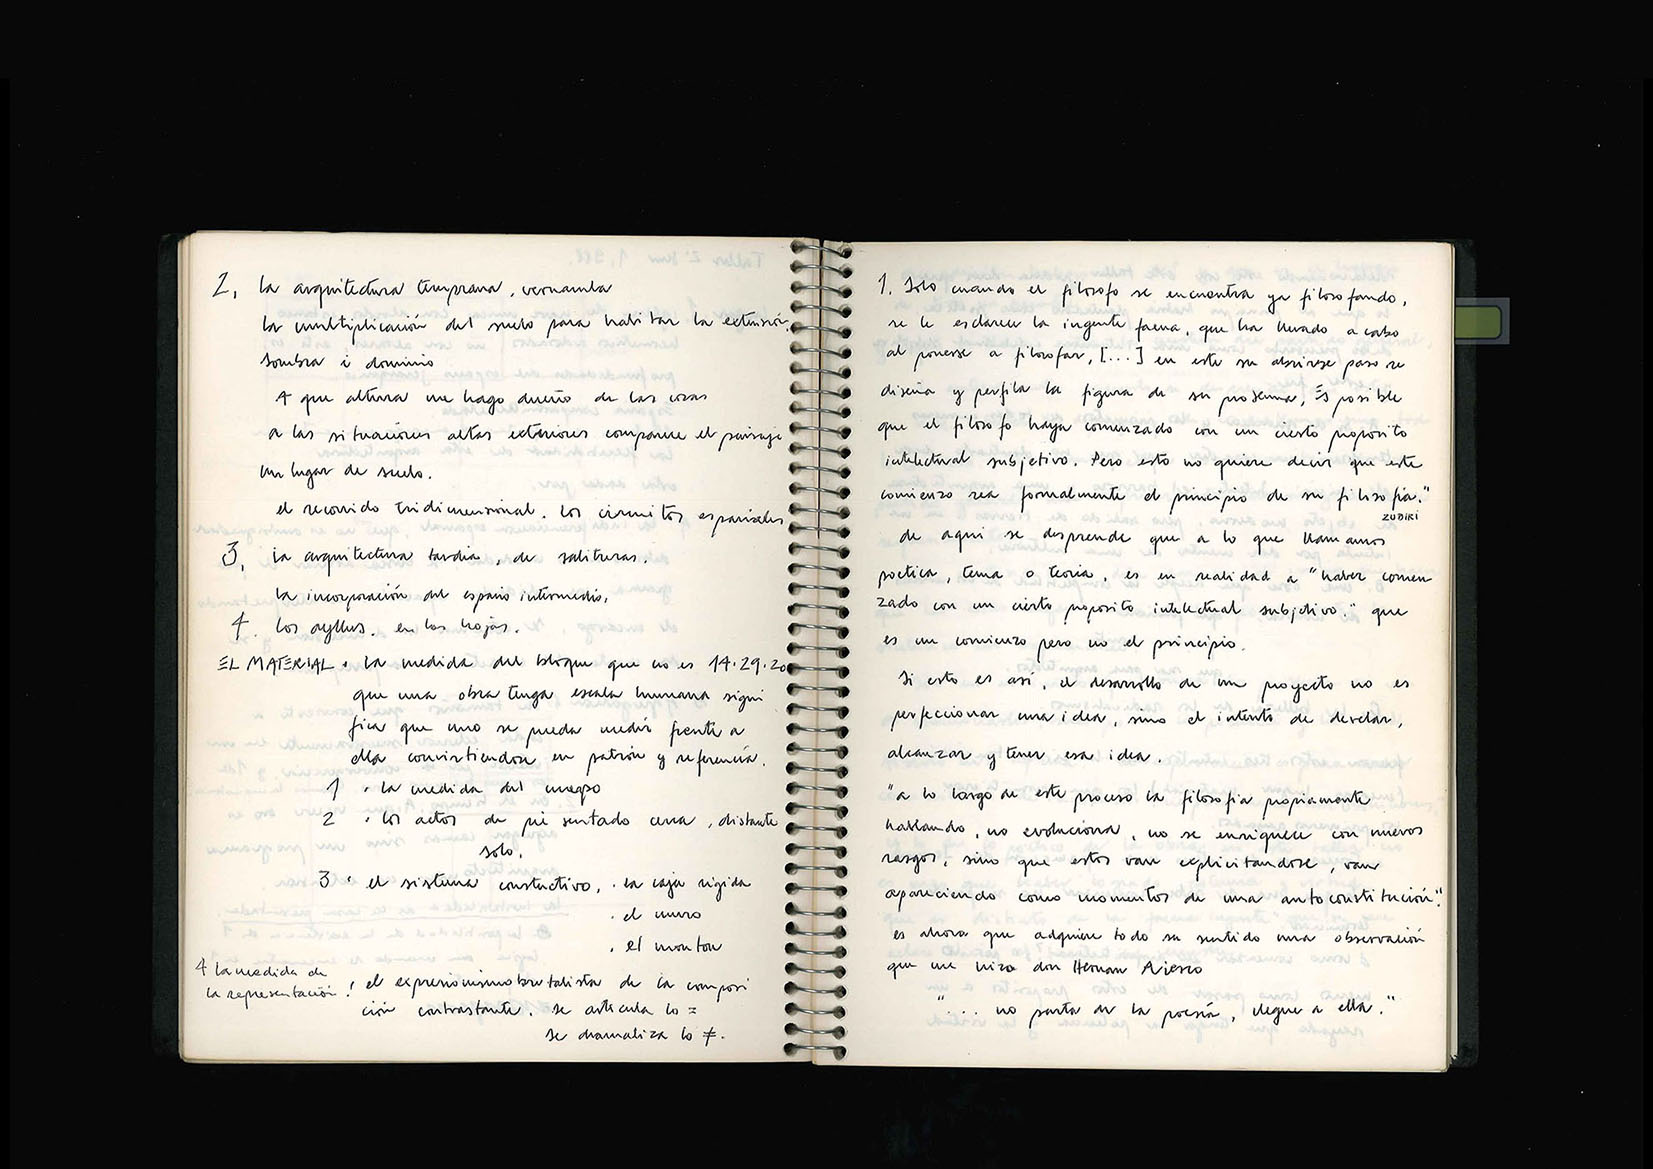 2. la arquitectura temprana, vernacula
la multiplicación del suelo para habitar la extensión,
sombra i dominio
A que altura me hago dueño de las cosas
a las situaciones altas exteriores comparece el paisaje
un lugar de suelo.
el recorrido tridimensional. los circuitos espaciales
3. la arquitectura tardia, de salitreras.
la incorporación del espacio intermedio,
4. los ayllus. en las hojas.
EL MATERIAL. la medida del bloque que no es 14.29.20
que una obra tenga escala humana signi
fica que uno se pueda medir frente a
ella convirtiendose en patrón y referencia.
1 . la medida del cuerpo
2 . los actos de pie sentado cerca, distante
solo.
3 . el sistema constuctivo, . la caja rigida
. el muro
. el monton
4 la medida de
la representación ! el expresionismo brutalista de la composi
ción contrastante. se articula lo =
se dramatiza lo ≠.
1. Solo cuando el filosofo se encuentra ya filosofando,
se le esclarece la ingente faena, que ha llevado a cabo
al ponerse a filosofar, [...] en este su abrirse paso se
diseña y perfila la figura de su problema, Es posible
que el filosofo haya comenzado con un cierto proposito
intelectual subjetivo. Pero esto no quiere decir que este
comienzo sea formalmente el principio de su filosofia."
ZUBIRI
de aqui se desprende que a lo que llamamos
poetica, tema o teoria, es en realidad a "haber comen
zado con un cierto proposito intelectual subjetivo." que
es un comienzo pero no el principio.
Si esto es asi, el desarrollo de un proyecto no es
perfeccionar una idea, sino el intento de develar,
alcanzar y tener esa idea.
"a lo largo de este proceso la filosofia propiamente
hablando, no evoluciona, no se enriquece con nuevos
rasgos, sino que estos van explicitandose, van
apareciendo como momentos de una autoconstitución."
es ahora que adquiere todo su sentido una observación
que me hizo don Hernan
"... no parta de la poesía, llegue a ella."